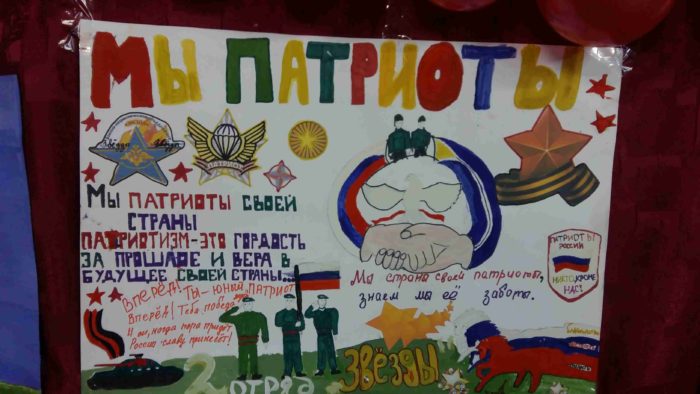 МЫ ПАТРИОТЫ
Звёзда
ПАТРИОТ
МЫ ПАТРИОТЫ СВОЕЙ
СТРАНЫ
ПАТРИОТИЗМ-ЭТО ГОРДОСТЬ
ЗА ПРОШЛОЕ И ВЕРА В
БУДУЩЕЕ СВОЕЙ СТРАНЫ...
Вперёд! Ты - юный патриот
Вперёд! Тебя победа
И он, когда пора придёт
России славу принесёт!
Мы страна своей патриоты,
знаем мы её заботы.
ПАТРИОТЫ
РОССИИ
НИКТО КРОМЕ
НАС!
2 ОТРЯД ЗВЁЗДЫ